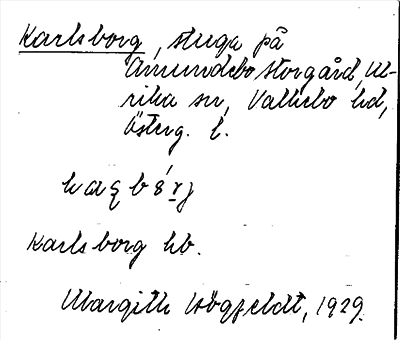 Karlsborg, stuga på
Amundebo storgård, Ul-
rika sn, Valkebo hd,
Österg. l.
Karlsborg hb.
Margith Högfeldt, 1929.